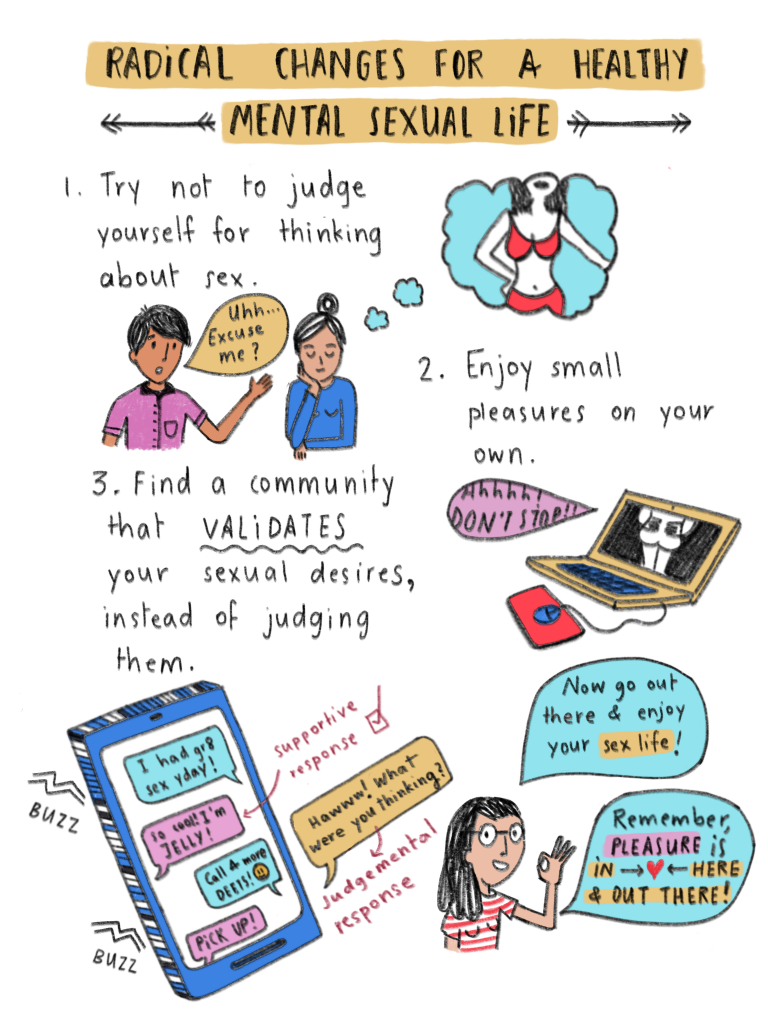 RADiCAL CHANGES FOR A HEALTHY
MENTAL SEXUAL LiFE
1. Try not to judge
yourself for thinking
about sex.
Uhh...
Excuse
me?
2. Enjoy small
pleasures on your
own.
Ahhhh!
DON'T STOP!!
3. Find a community
that VALiDATES
your sexual desires,
instead of judging
them.
I had gr8
sex yday!
So cool! I'm
JELLY!
Call 4 more
DEETS!
PiCK UP!
BUZZ
BUZZ
supportive
response
Hawww! What
were you thinking?
judgemental
response
Now go out
there & enjoy
your sex life!
Remember,
PLEASURE is
iN HERE
& OUT THERE!